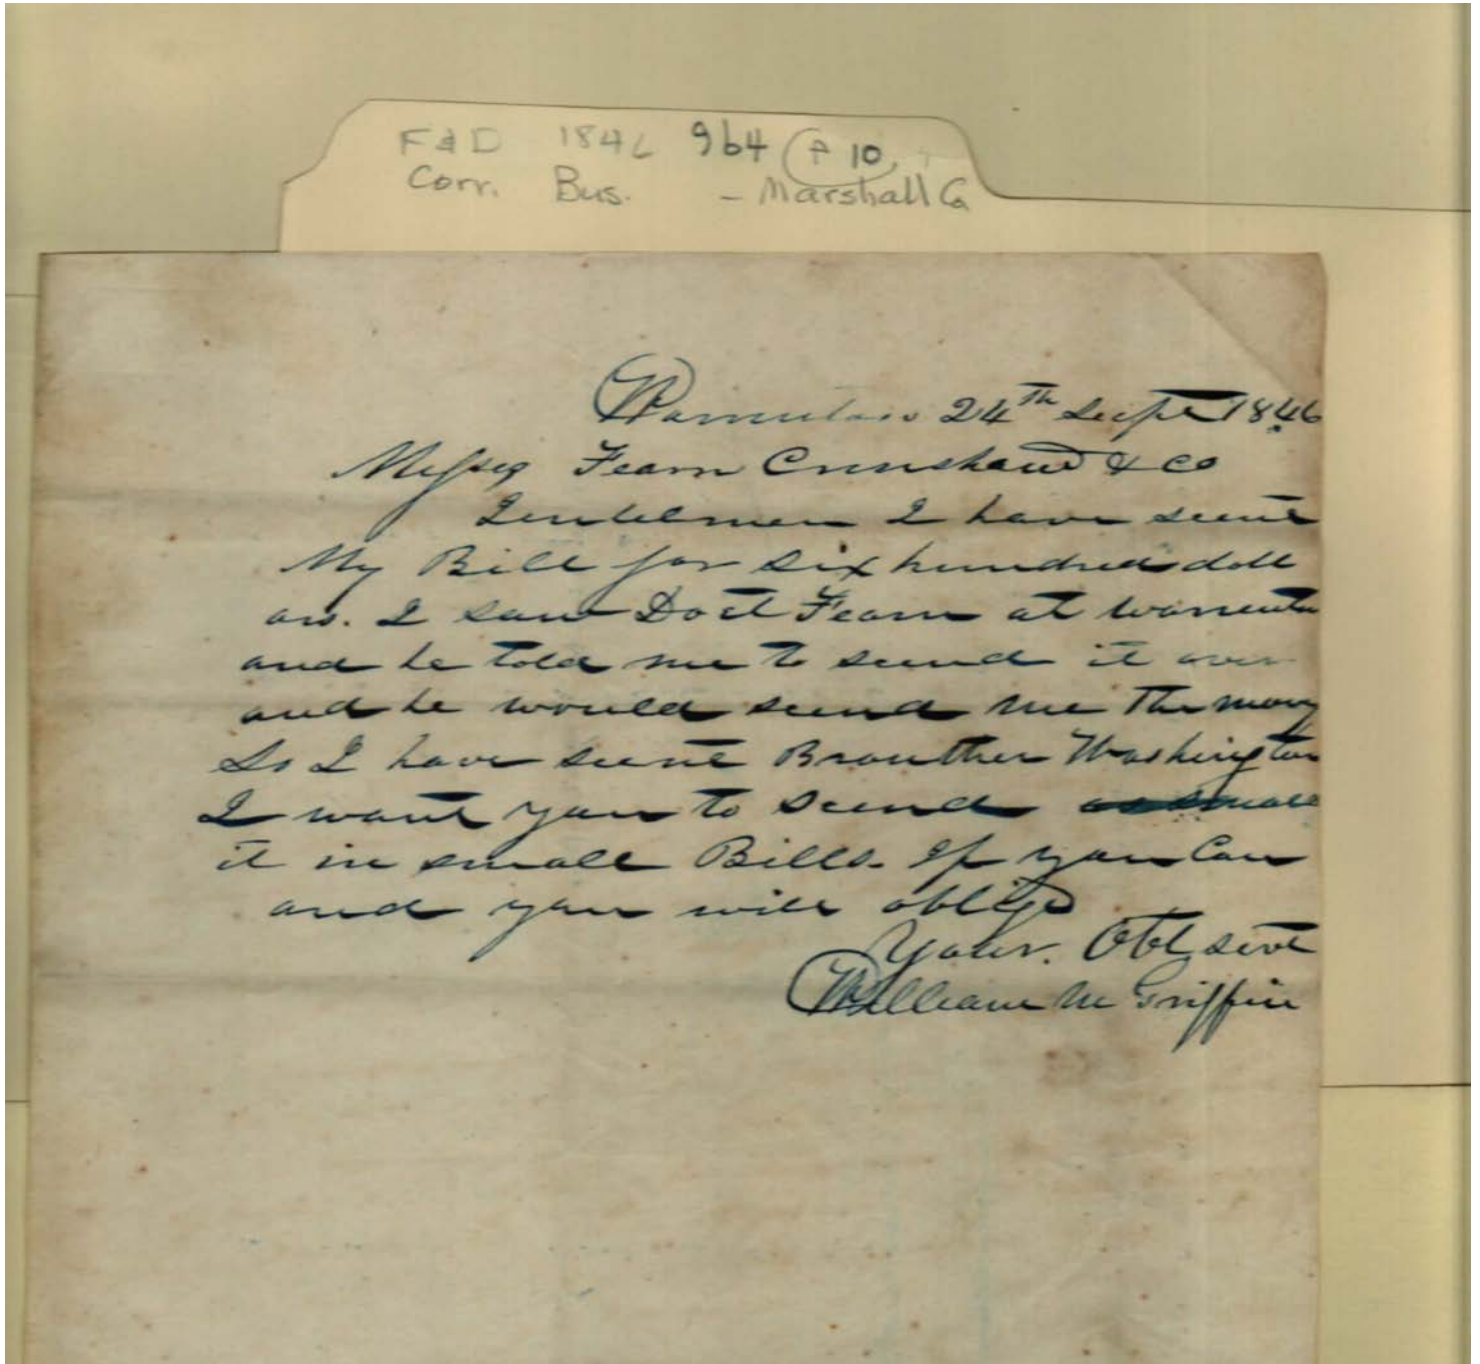 F & D 1846 964 P 10
Corr. Bus. - Marshall Co
Warrenton 24th Sept 1846
Messrs Fearn Crenshaw & Co
Gentelmen I have sent
My Bill for six hundred doll
ars. I saw Doct Fearn at Warrenton
and he told me to seend it over
and he would seend me the mony
So I have seent Brouther Washington
I want you to seend
it in small Bills. If you Can
and you will oblige
Your. Obt servt
William M Griffin